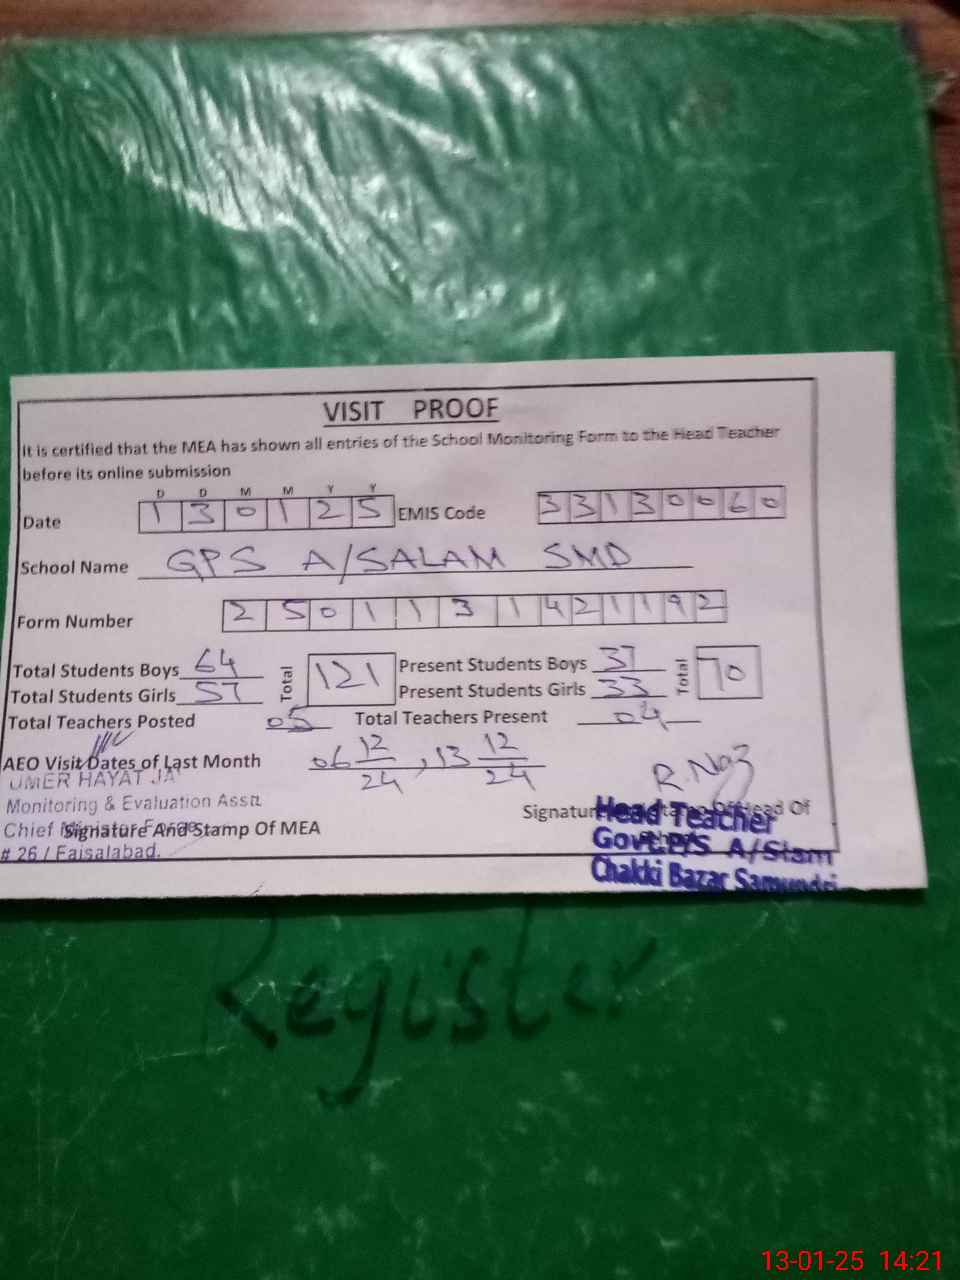 VISIT PROOF
It is certified that the MEA has shown all entries of the School Monitoring Form to the Head Teacher
before its online submission
D D M M Y Y
Date 1 3 0 1 2 5 EMIS Code 3 3 1 3 0 0 6 0
School Name GPS A/SALAM SMD
Form Number 2 5 0 1 1 3 1 4 2 1 1 9 2
Total Students Boys 64 Total 121 Present Students Boys 37 Total 70
Total Students Girls 57 Present Students Girls 33
Total Teachers Posted 05 Total Teachers Present 04
AEO Visit Dates of Last Month 06 12/24, 13 12/24
R. Naz
UMER HAYAT
Monitoring & Evaluation Asstt
Chief
Signature And Stamp Of MEA
# 26 / Faisalabad.
Signature Head Of
Head Teacher
Govt.P/S A/Slam
Chakki Bazar Samundri
Register
13-01-25 14:21